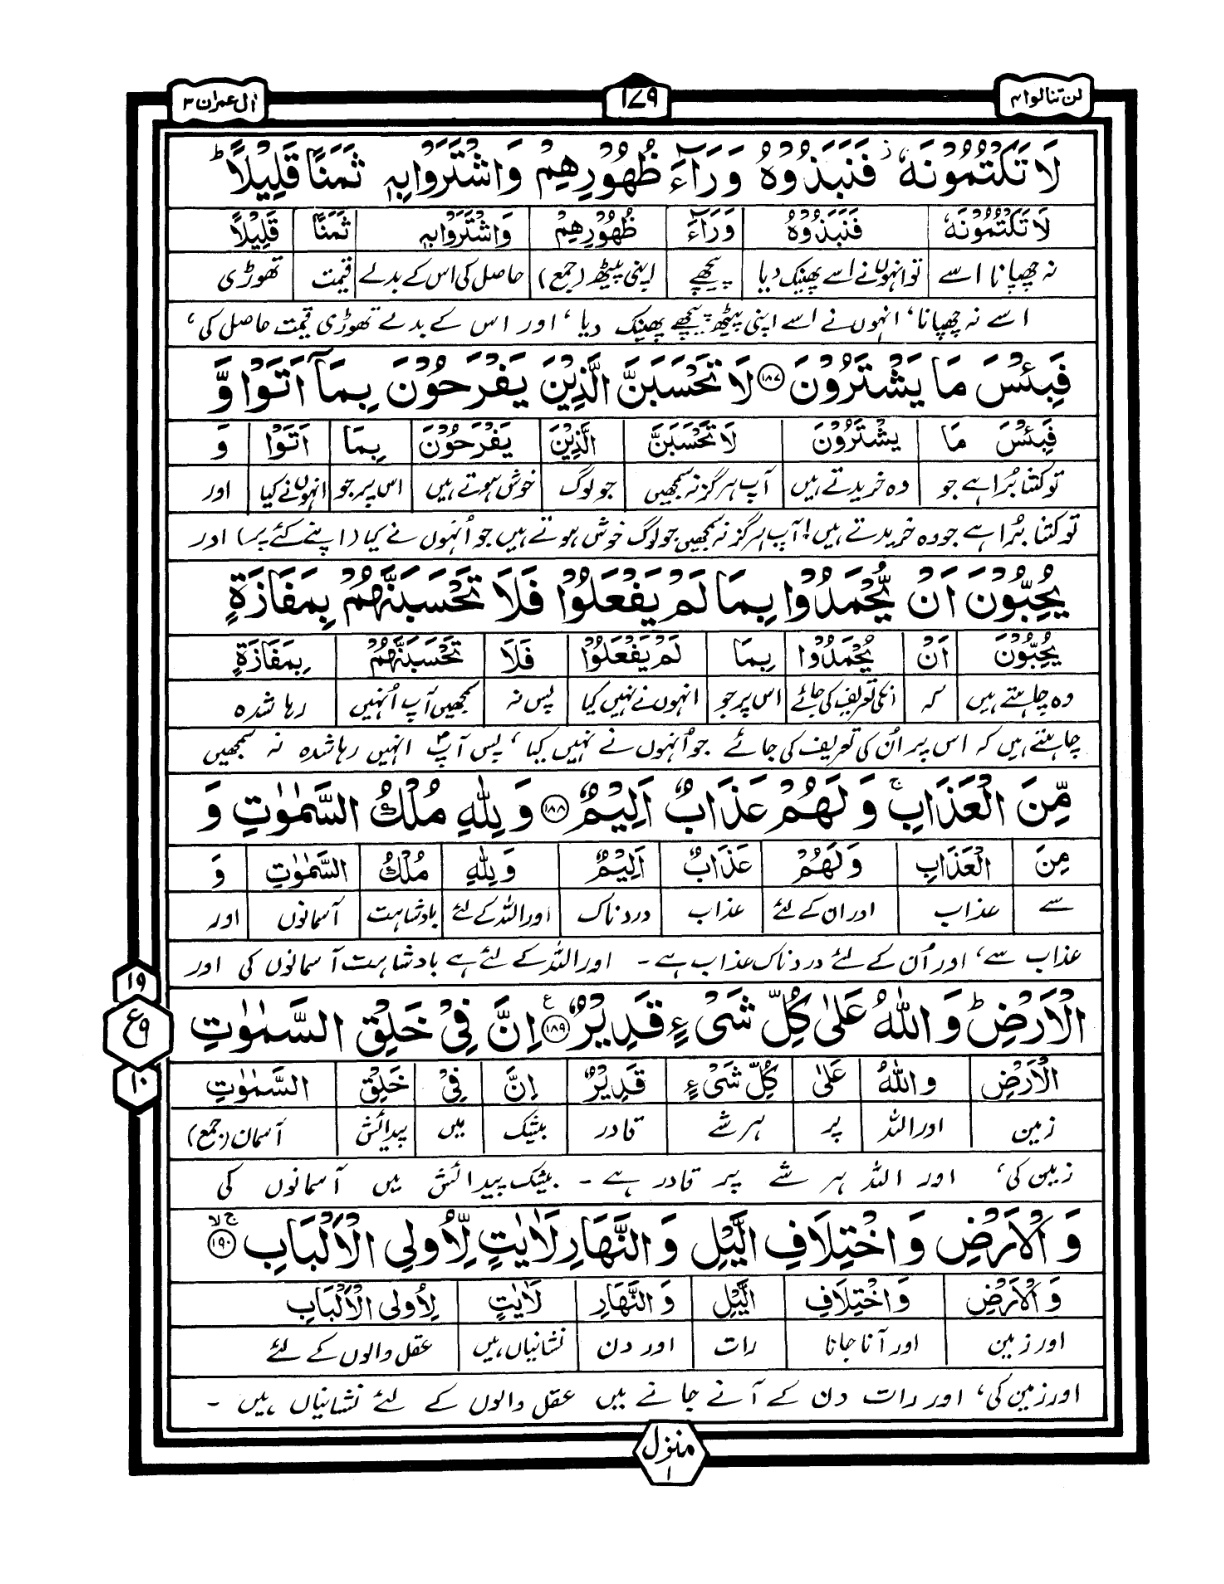 لن تنالوا ۴
۱۷۹
اٰل عمران ۳
لَا تَكْتُمُوْنَهٗ ز فَنَبَذُوْهُ وَرَآءَ ظُهُوْرِهِمْ وَاشْتَرَوْا بِهٖ ثَمَنًا قَلِيْلًا ؕ
لَا تَكْتُمُوْنَهٗ فَنَبَذُوْهُ وَرَآءَ ظُهُوْرِهِمْ وَاشْتَرَوْا بِهٖ ثَمَنًا قَلِيْلًا
نہ چھپانا اسے توانہوں نے اسے پھینک دیا پیچھے اپنی پیٹھ (جمع) حاصل کی اس کے بدلے قیمت تھوڑی
اسے نہ چھپانا، انہوں نے اسے اپنی پیٹھ پیچھے پھینک دیا، اور اس کے بدلے تھوڑی قیمت حاصل کی،
فَبِئْسَ مَا يَشْتَرُوْنَ ۱۸۷ لَا تَحْسَبَنَّ الَّذِيْنَ يَفْرَحُوْنَ بِمَآ اَتَوْا وَّ
فَبِئْسَ مَا يَشْتَرُوْنَ لَا تَحْسَبَنَّ الَّذِيْنَ يَفْرَحُوْنَ بِمَا اَتَوْا وَ
تو کتنا بُرا ہے جو وہ خریدتے ہیں آپ ہرگز نہ سمجھیں جو لوگ خوش ہوتے ہیں اس پر جو انہوں نے کیا اور
تو کتنا بُرا ہے جو وہ خریدتے ہیں! آپ ہرگز نہ سمجھیں جو لوگ خوش ہوتے ہیں جو اُنہوں نے کیا (اپنے کئے پر) اور
يُحِبُّوْنَ اَنْ يُّحْمَدُوْا بِمَا لَمْ يَفْعَلُوْا فَلَا تَحْسَبَنَّهُمْ بِمَفَازَةٍ
يُحِبُّوْنَ اَنْ يُحْمَدُوْا بِمَا لَمْ يَفْعَلُوْا فَلَا تَحْسَبَنَّهُمْ بِمَفَازَةٍ
وہ چاہتے ہیں کہ انکی تعریف کی جائے اس پر جو انہوں نے نہیں کیا پس نہ سمجھیں آپ اُنہیں رہا شدہ
چاہتے ہیں کہ اس پر اُن کی تعریف کی جائے جو اُنہوں نے نہیں کیا، پس آپؐ انہیں رہا شدہ نہ سمجھیں
مِّنَ الْعَذَابِ ج وَلَهُمْ عَذَابٌ اَلِيْمٌ ۱۸۸ وَلِلّٰهِ مُلْكُ السَّمٰوٰتِ وَ
مِنَ الْعَذَابِ وَلَهُمْ عَذَابٌ اَلِيْمٌ وَلِلّٰهِ مُلْكُ السَّمٰوٰتِ وَ
سے عذاب اور ان کے لئے عذاب دردناک اور اللہ کے لئے بادشاہت آسمانوں اور
عذاب سے، اور اُن کے لئے دردناک عذاب ہے - اور اللہ کے لئے ہے بادشاہت آسمانوں کی اور
الْاَرْضِ ؕ وَاللّٰهُ عَلٰى كُلِّ شَىْءٍ قَدِيْرٌ ع ۱۸۹ اِنَّ فِىْ خَلْقِ السَّمٰوٰتِ
۱۹
ع ۹
۱۰
الْاَرْضِ وَاللّٰهُ عَلٰى كُلِّ شَىْءٍ قَدِيْرٌ اِنَّ فِىْ خَلْقِ السَّمٰوٰتِ
زمین اور اللہ پر ہر شے قادر بیشک میں پیدائش آسمان (جمع)
زمین کی، اور اللہ ہر شے پر قادر ہے - بیشک پیدائش میں آسمانوں کی
وَالْاَرْضِ وَاخْتِلَافِ الَّيْلِ وَالنَّهَارِ لَاٰيٰتٍ لِّاُولِى الْاَلْبَابِ ج لا ۱۹۰
وَالْاَرْضِ وَاخْتِلَافِ الَّيْلِ وَالنَّهَارِ لَاٰيٰتٍ لِاُولِى الْاَلْبَابِ
اور زمین اور آنا جانا رات اور دن نشانیاں ہیں عقل والوں کے لئے
اور زمین کی، اور رات دن کے آنے جانے میں عقل والوں کے لئے نشانیاں ہیں -
منزل ۱